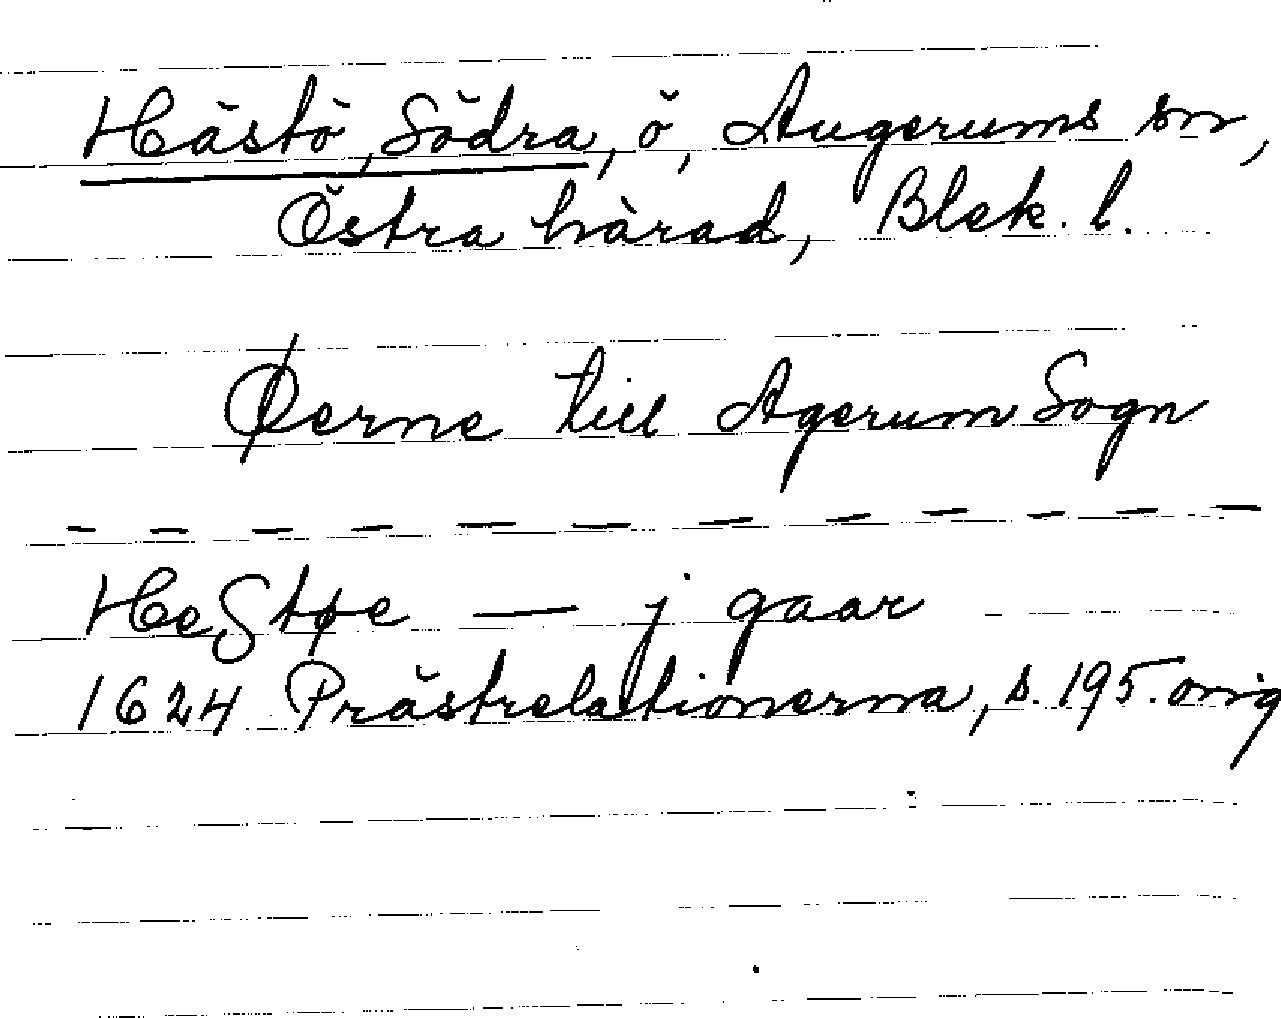 Hästö, Södra, ö, Augerums sn,
Östra härad, Blek. l.
Øerne till Agerum Sogn
- - - - - - - - - - - -
HeStøe — j gaar
1624 Prästrelationerna, s. 195. orig